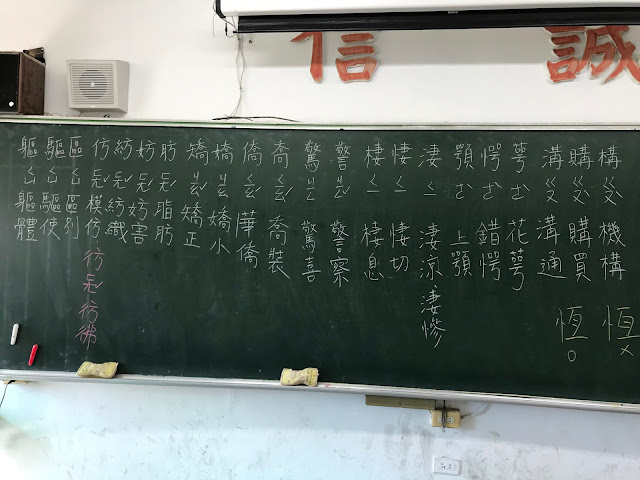 誠信
構 ㄍㄡˋ 機構 恆 ×
購 ㄍㄡˋ 購買 恆 ○
溝 ㄍㄡ 溝通
萼 ㄜˋ 花萼
愕 ㄜˋ 錯愕
顎 ㄜˋ 上顎
淒 ㄑㄧ 淒涼、淒慘
悽 ㄑㄧ 悽切
棲 ㄑㄧ 棲息
警 ㄐㄧㄥˇ 警察
驚 ㄐㄧㄥ 驚喜
喬 ㄑㄧㄠˊ 喬裝
僑 ㄑㄧㄠˊ 華僑
嬌 ㄐㄧㄠ 嬌小
矯 ㄐㄧㄠˇ 矯正
肪 ㄈㄤˊ 脂肪
妨 ㄈㄤˊ 妨害
紡 ㄈㄤˇ 紡織
仿 ㄈㄤˇ 模仿 彷 ㄈㄤˇ 彷彿
區 ㄑㄩ 區別
驅 ㄑㄩ 驅使
軀 ㄑㄩ 軀體